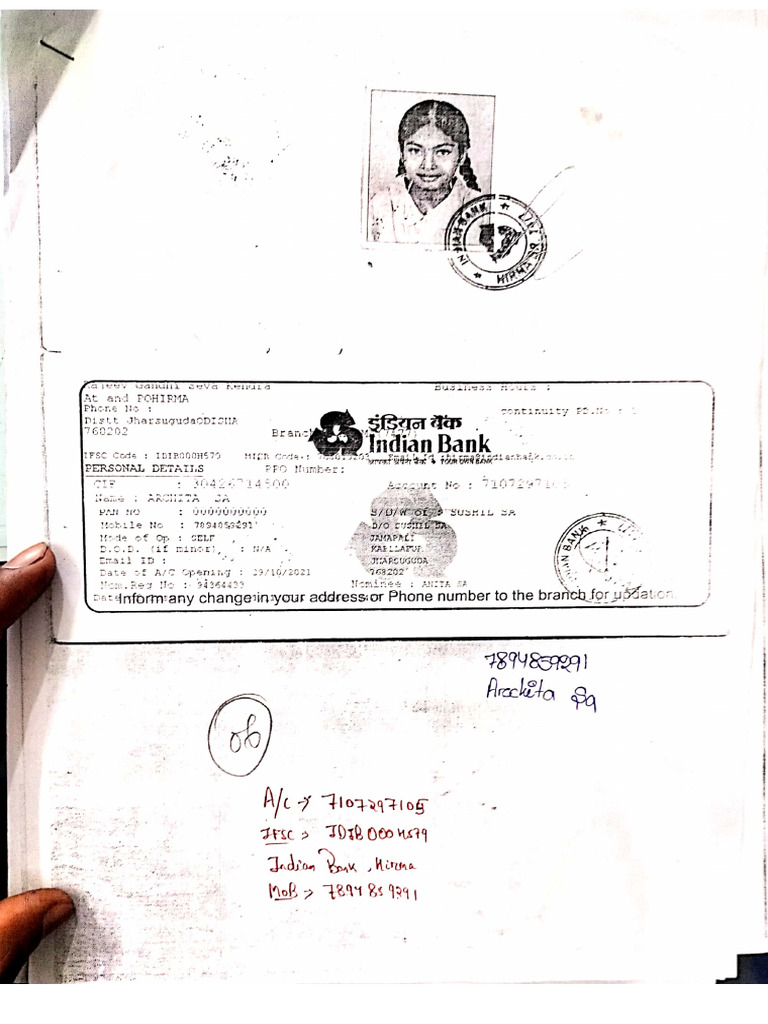 INDIAN BANK
HIRMA
Rajeev Gandhi Seva Kendra Business Hours :
At and POHIRMA
Phone No : Continuity PB.No :
Distt JharsugudaODISHA
768202 Branch
इंडियन बैंक
Indian Bank
IFSC Code : IDIB000H579 MICR Code.: Email Id :hirma@indianbank.co.in
PERSONAL DETAILS PPO Number:
CIF : 30426714800 Account No : 7107297105
Name : ARCHITA SA
PAN NO : 0000000000 S/D/W of : SUSHIL SA
Mobile No : 7894859291 D/O SUSHIL SA
Mode of Op : SELF JAMAPALI
D.O.B. (if minor), : N/A KABILAPUR
Email ID : JHARSUGUDA
Date of A/C Opening : 29/10/2021 768202
Nom.Reg No : 94364433 Nominee : ANITA SA
Inform any change in your address or Phone number to the branch for updation.
INDIAN BANK
7894859291
Archita Sa
06
A/c → 7107297105
IFSC → IDIB000H579
Indian Bank, Hirma
MOB → 7894859291